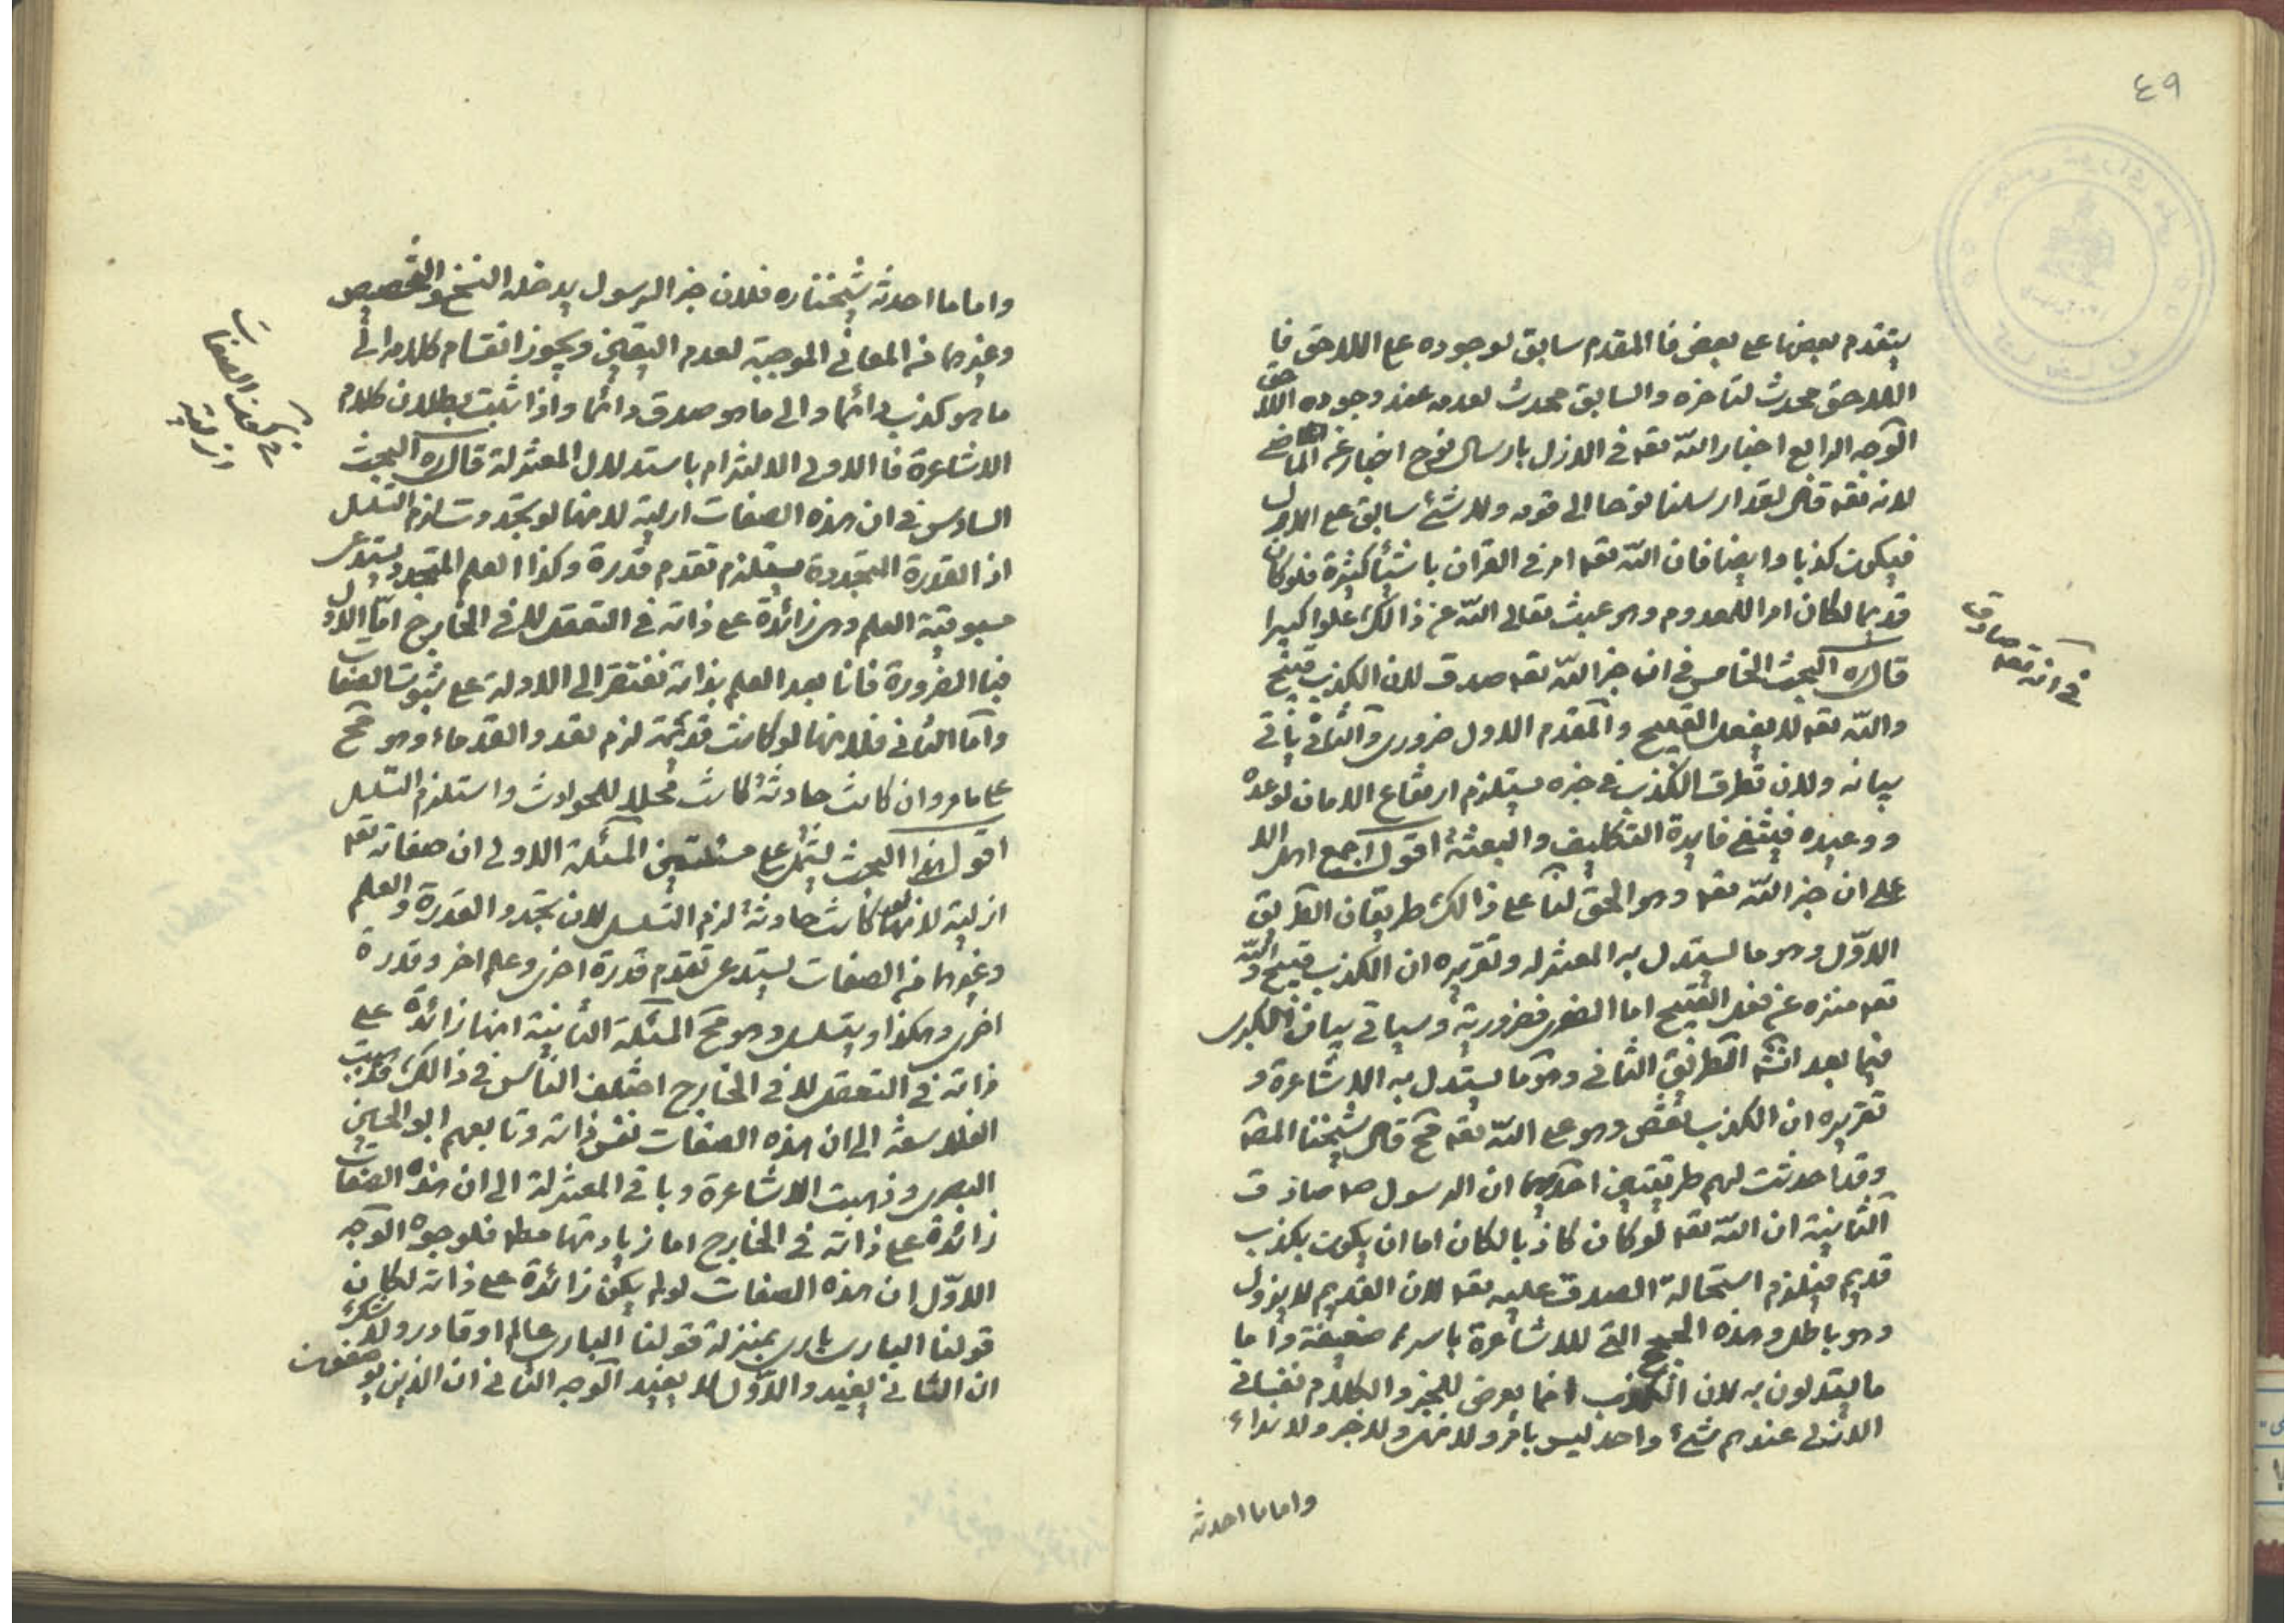 ٤٩
يتقدم بعضها على بعض فا المقدم سابق لوجوده على اللاحق فا
اللاحق محدث لتاخره والسابق محدث لعدمه عند وجوده اللاحق
الوجه الرابع اخبار الله تعه في الازل بارسال نوح اخبار عن الماضي
لانه تعه قال لقد ارسلنا نوحا الى قومه ولا شئ سابق على الازل
فيكون كذبا وايضا فان الله تعه امر في القران باشيأ كثيرة فلو كان
قديما لكان امرا للمعدوم وهو عبث تعالى الله عن ذالك علوا كبيرا
قال ره البحث الخامس في ان خبر الله تعه صدق لان الكذب قبيح
والله تعه لا يفعل القبيح والمقدم الاول ضروري والثاني ياتي
بيانه ولان تطرق الكذب في خبره يستلزم ارتفاع الامان لوعده
ووعيده فينتفي فايدة التكليف والبعثة اقول اجمع اهل
على ان خبر الله تعه وهو الحق لنا على ذالك طريقان الطريق
الاوّل وهو ما يستدل به المعتزله وتقريره ان الكذب قبيح والله
تعه منزه عن فعل القبيح اما الصغرى فضرورية وسياتي بيان الكبرى
فيما بعد انشه الطريق الثاني وهو ما يستدل به الاشاعرة و
تقريره ان الكذب نقص وهو على الله تعه مح قال شيخنا المصه
وقد احدثت لهم طريقتين احديهما ان الرسول صه صادق
الثانية ان الله تعه لو كان كاذبا لكان اما ان يكون بكذب
قديم فيلزم استحالة الصدق عليه تعه لان القديم لا يزول
وهو باطل وهذه الحجج التي للاشاعرة باسرها ضعيفة واما
ما يستدلون به لان الكذب انما يعرض للخبر والكلام نفساني
الازلي عندهم شئ واحد ليس بامر ولا نهى ولا خبر ولا نداء
واما ما احدثه
في انه تعه صادق
واما ما احدثه شيخنا ره فلان خبر الرسول يدخله النسخ والتخصيص
وغيرهما من المعاني الموجبة لعدم اليقين ويجوز انقسام كلامه الى
ما هو كذب دائما والى ما هو صدق دائما واذا ثبت بطلان كلام
الاشاعرة فا الاولى الالتزام باستدلال المعتزلة قال ره البحث
السادس في ان هذه الصفات ازلية لانها لو تجددت لزم التسلسل
اذ القدرة المتجددة يستلزم تقدم قدرة وكذا العلم المتجدد يستدعى
مسبوقية العلم وهى زائدة على ذاته في التعقل لا في الخارج امّا الاول
فبا الضرورة فانا بعد العلم بذاته نفتقر الى الادلة على ثبوت الصفات
واما الثاني فلانها لو كانت قديمة لزم تعدد القدماء وهو مح
على ما مر وان كانت حادثة كانت محلا للحوادث واستلزم التسلسل
اقول هذا البحث يشتمل على مسئلتين المسئلة الاولى ان صفاته تعه
ازلية لانها لو كانت حادثة لزم التسلسل لان تجدد القدرة والعلم
وغيرهما من الصفات يستدعى تقدم قدرة اخرى وعلم اخر وقدرة
اخرى وهكذا ويتسلسل وهو مح المسئلة الثانية انها زائدة على
ذاته في التعقل لا في الخارج اختلف الناس في ذالك فذهبت
الفلاسفة الى ان هذه الصفات نفس ذاته وتابعهم ابو الحسين
البصرى وذهبت الاشاعرة وباقي المعتزلة الى ان هذه الصفات
زائدة على ذاته في الخارج اما زيادتها مطه فلوجوه الوجه
الاوّل ان هذه الصفات لو لم يكن زائدة على ذاته لكان
قولنا البارى بارى بمنزلة قولنا البارى عالم او قادر ولا شك
ان الثاني يفيد والاوّل لا يفيد الوجه الثاني ان الذين
الصفات
ازلية